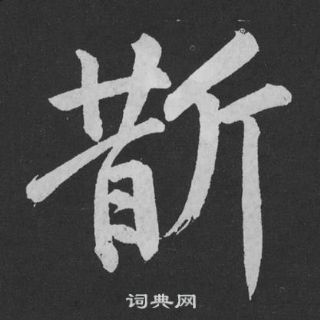 斮
词典网